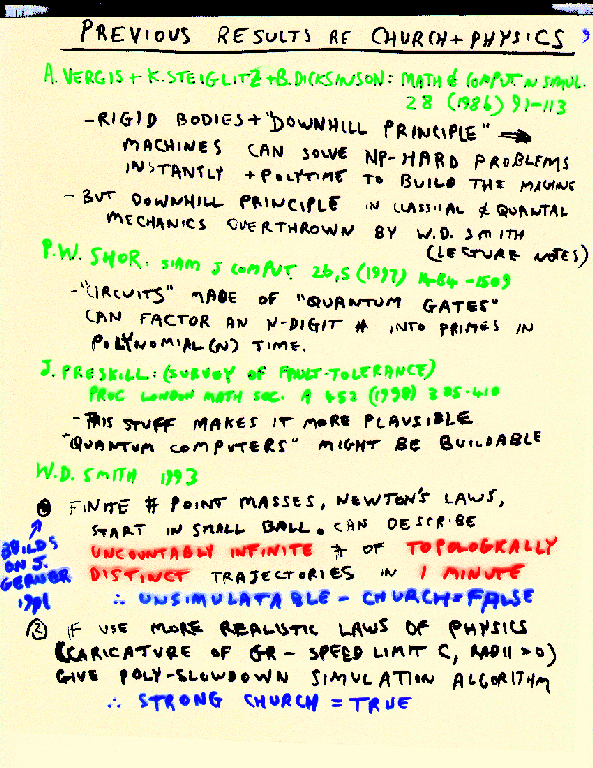 PREVIOUS RESULTS RE CHURCH + PHYSICS
A. VERGIS + K. STEIGLITZ + B. DICKSINSON: MATH & COMPUT N SIMUL.
28 (1986) 91-113
- RIGID BODIES + "DOWNHILL PRINCIPLE" →
MACHINES CAN SOLVE NP-HARD PROBLEMS
INSTANTLY + POLYTIME TO BUILD THE MACHINE
- BUT DOWNHILL PRINCIPLE IN CLASSICAL & QUANTAL
MECHANICS OVERTHROWN BY W.D. SMITH
(LECTURE NOTES)
P.W. SHOR: SIAM J COMPUT. 26,5 (1997) 1484-1509
- "CIRCUITS" MADE OF "QUANTUM GATES"
CAN FACTOR AN N-DIGIT # INTO PRIMES IN
POLYNOMIAL(N) TIME.
J. PRESKILL: (SURVEY OF FAULT-TOLERANCE)
PROC LONDON MATH SOC. A 452 (1998) 385-410
- THIS STUFF MAKES IT MORE PLAUSIBLE
"QUANTUM COMPUTERS" MIGHT BE BUILDABLE
W.D. SMITH 1993
① FINITE # POINT MASSES, NEWTON'S LAWS,
START IN SMALL BALL. CAN DESCRIBE
UNCOUNTABLY INFINITE # OF TOPOLOGICALLY
DISTINCT TRAJECTORIES IN 1 MINUTE
∴ UNSIMULATABLE - CHURCH = FALSE
BUILDS
ON J.
GERVER
1991
② IF USE MORE REALISTIC LAWS OF PHYSICS
(CARICATURE OF GR - SPEED LIMIT C, RADII > 0)
GIVE POLY-SLOWDOWN SIMULATION ALGORITHM
∴ STRONG CHURCH = TRUE